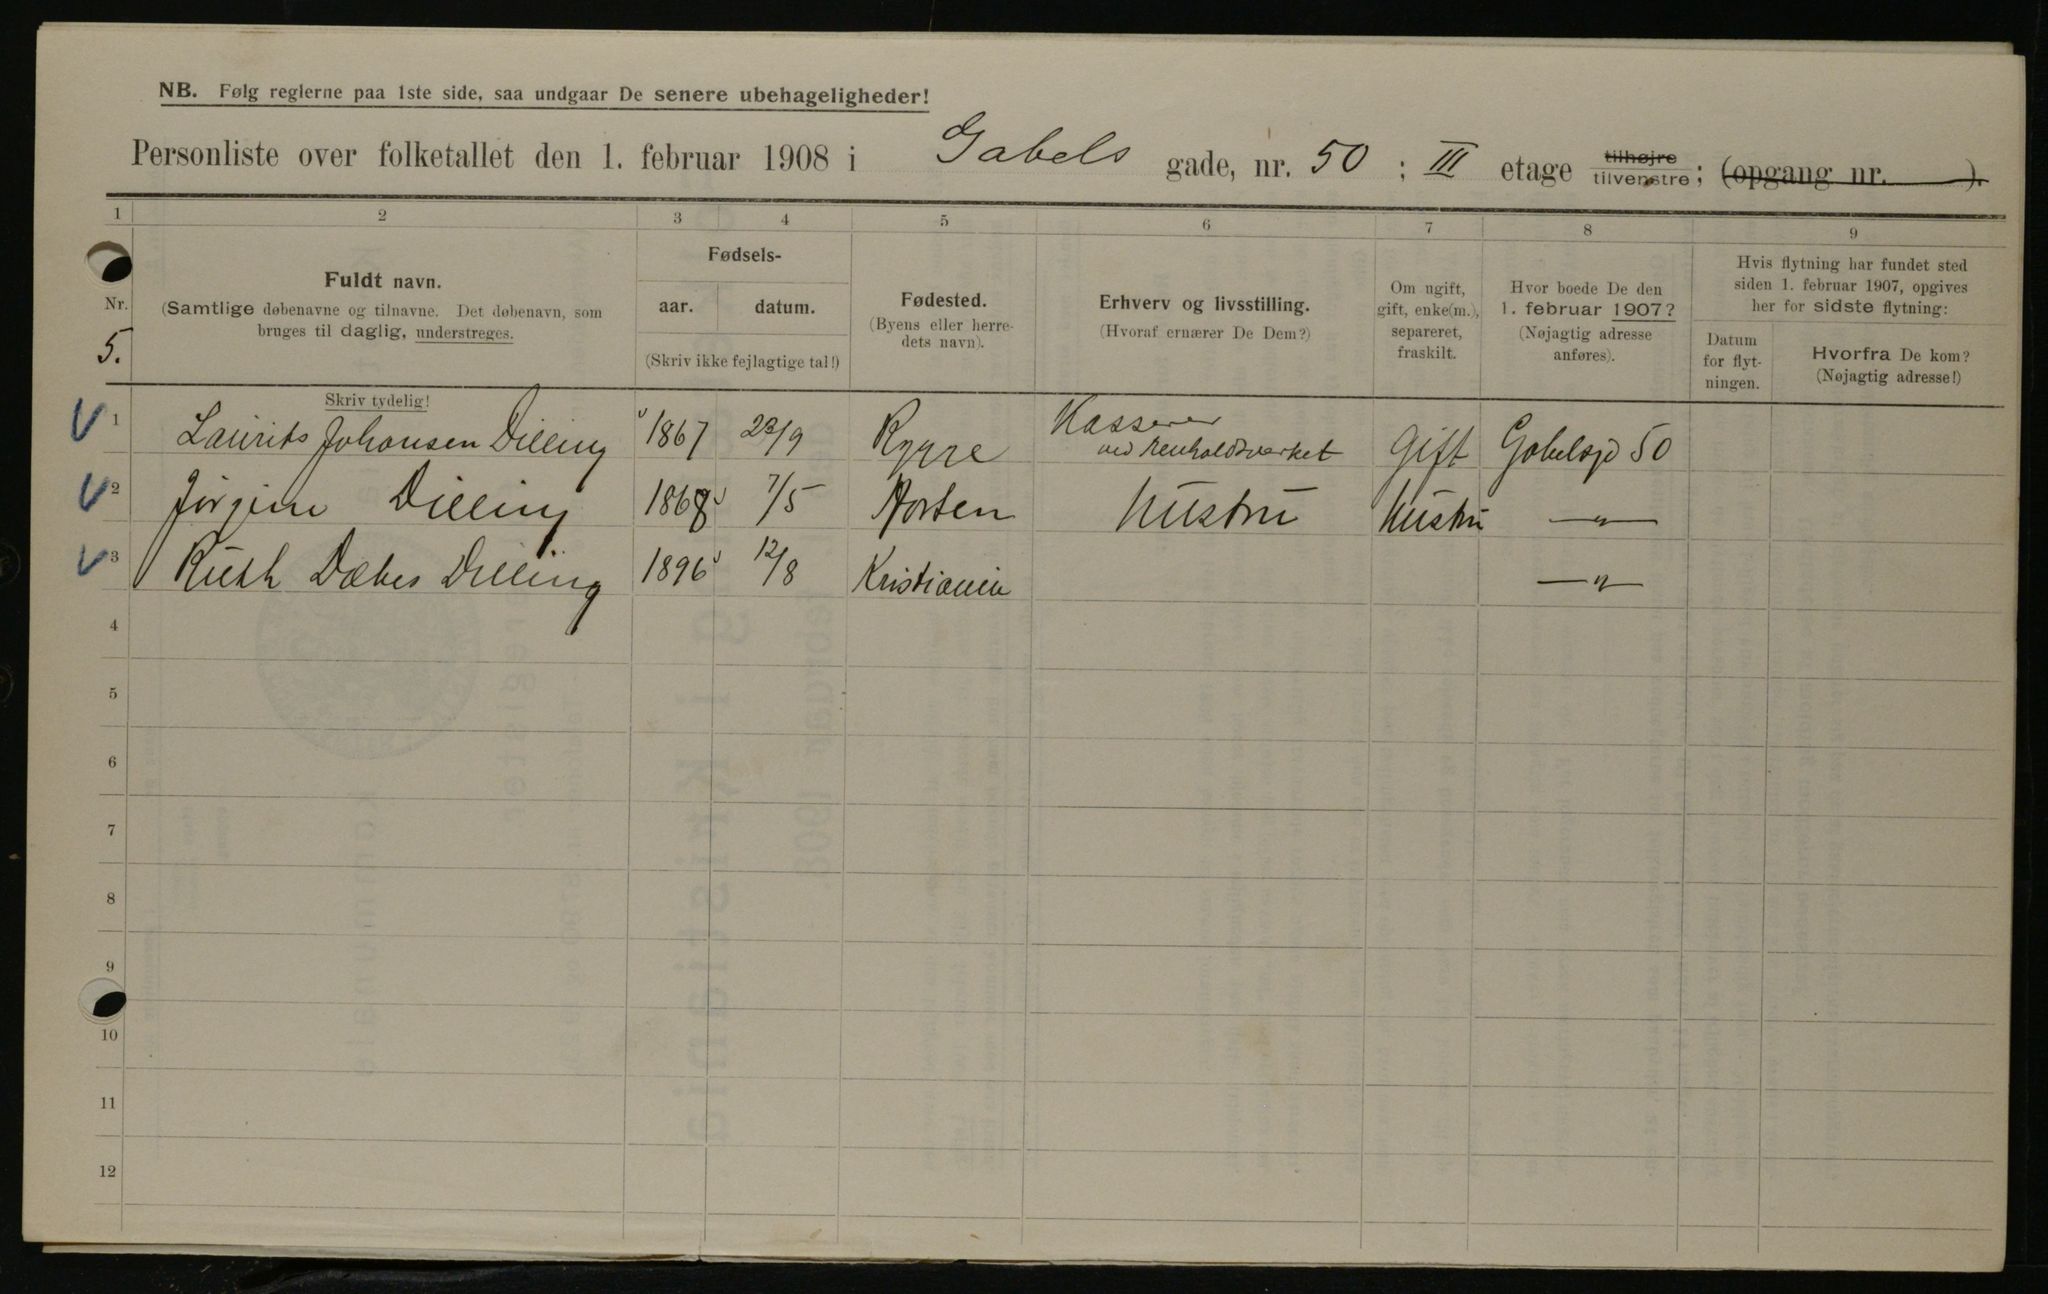 NB. Følg reglerne paa 1ste side, saa undgaar De senere ubehageligheder!
Personliste over folketallet den 1. februar 1908 i Gabels gade, nr. 50 ; III etage tilhøjre tilvenstre; (opgang nr. ).
1 2 3 4 5 6 7 8 9
Nr.
5.
Fuldt navn.
(Samtlige døbenavne og tilnavne. Det døbenavn, som
bruges til daglig, understreges.
Skriv tydelig!
Fødsels-
aar. datum.
(Skriv ikke fejlagtige tal!)
Fødested.
(Byens eller herre-
dets navn).
Erhverv og livsstilling.
(Hvoraf ernærer De Dem?)
Om ugift,
gift, enke(m.),
separeret,
fraskilt.
Hvor boede De den
1. februar 1907?
(Nøjagtig adresse
anføres).
Hvis flytning har fundet sted
siden 1. februar 1907, opgives
her for sidste flytning:
Datum
for flyt-
ningen.
Hvorfra De kom?
(Nøjagtig adresse!)
1 Laurits Johansen Dilling 1867 /9 Rygge Kasserer
ved Renholdsverket Gift Gabelsgd 50
2 Jørgine Dilling 1868 7/5 Horten Hustru Hustru —"—
3 Ruth Dilling 1896 12/8 Kristiania —"—
4
5
6
7
8
9
10
11
12